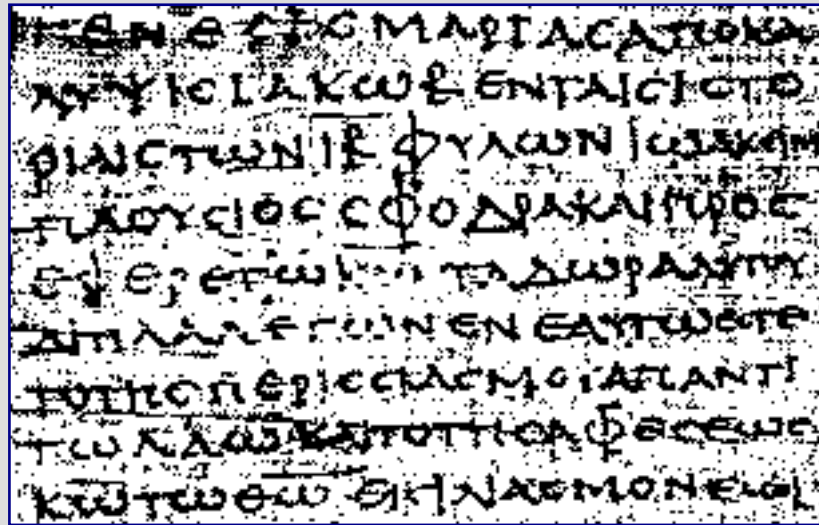 ΓΕΝΕϹΙϹ ΜΑΡΙΑϹ ΑΠΟΚΑ
ΛΥΨΙϹ ΙΑΚΩΒ ΕΝ ΤΑΙϹ ΙϹΤΟ
ΡΙΑΙϹ ΤΩΝ ΙΒ ΦΥΛΩΝ ΙΩΑΚΗΜ
ΠΛΟΥϹΙΟϹ ϹΦΟΔΡΑ ΚΑΙ ΠΡΟϹ
ΕΦΕΡΕ ΤΩ ΤΑ ΔΩΡΑ ΑΥΤΟΥ
ΔΙΠΛΑ ΛΕΓΩΝ ΕΝ ΕΑΥΤΩ
ΤΟ ΤΗϹ ΠΕΡΙϹϹΙΑϹ ΜΟΥ ΑΠΑΝΤΙ
ΤΩ ΛΑΩ ΚΑΙ ΤΟ ΤΗϹ ΑΦΕϹΕΩϹ
ΚΩ ΤΩ ΘΩ ΕΙϹ ΙΛΑϹΜΟΝ ΕΜΟΙ